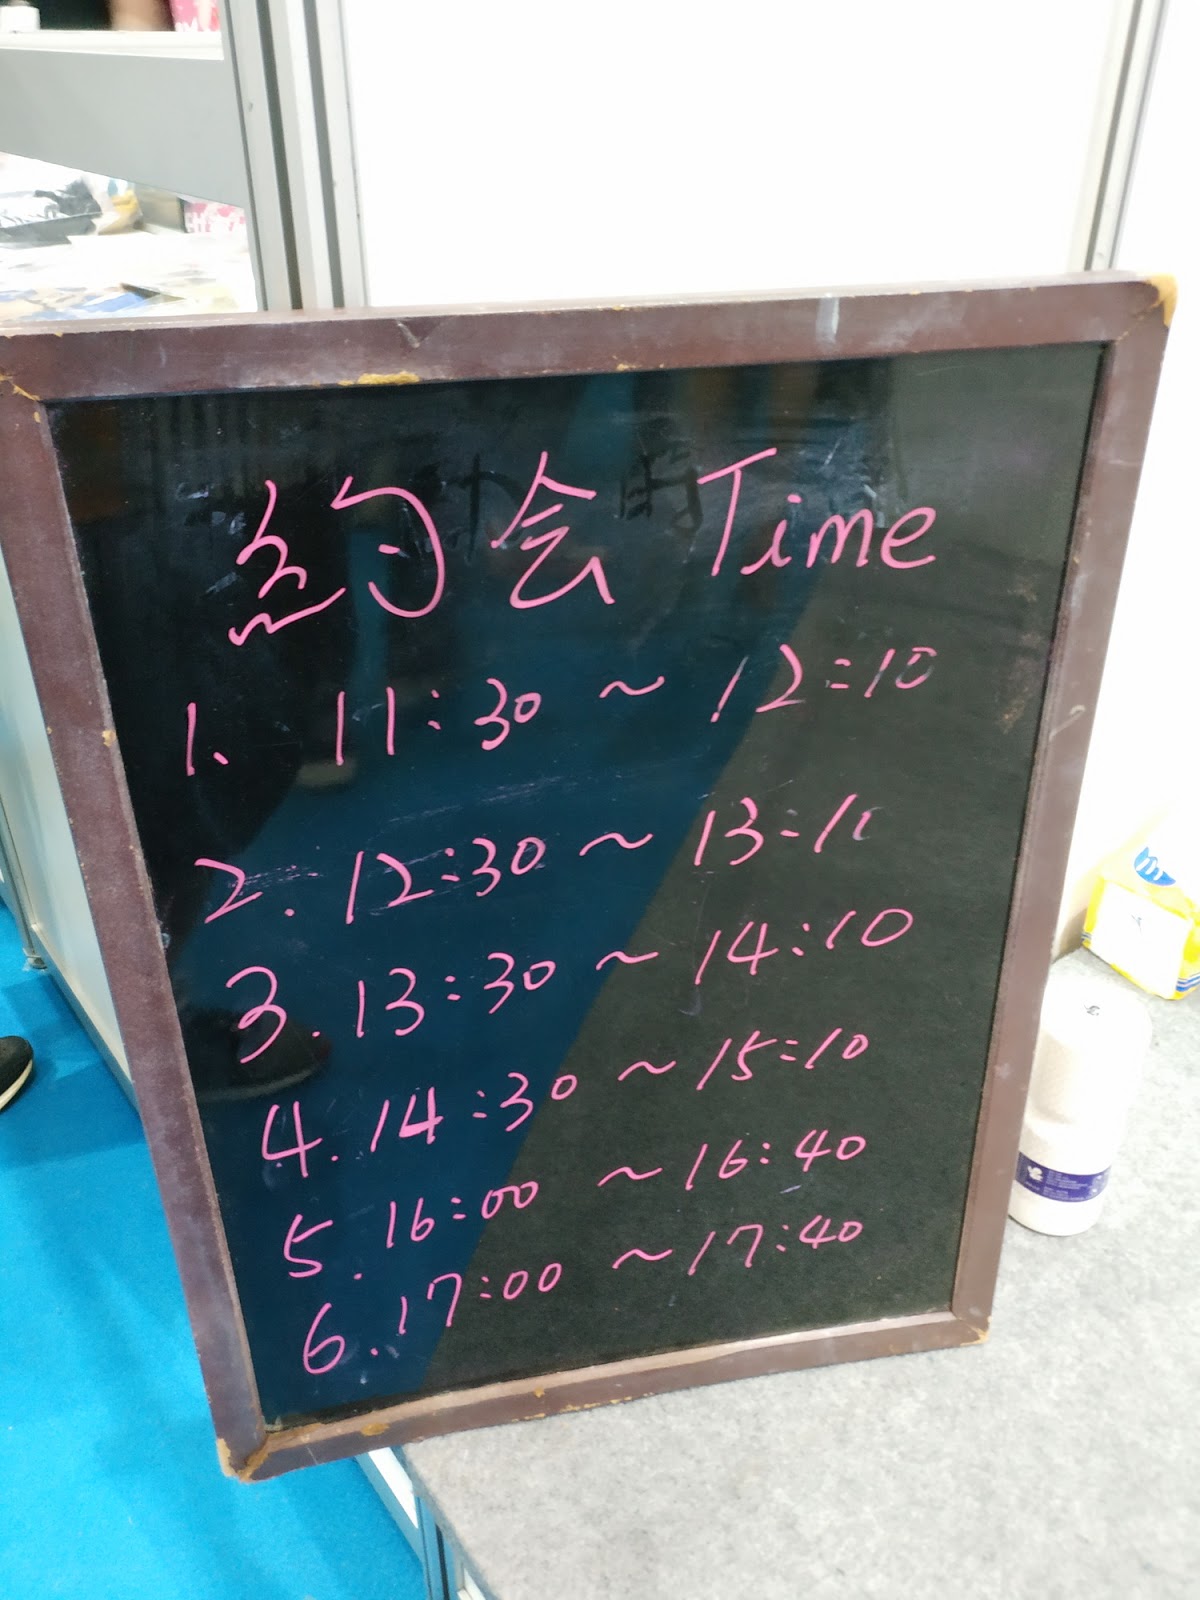 約会 Time
1、 11:30 ~ 12:10
2. 12:30 ~ 13:10
3. 13:30 ~ 14:10
4. 14:30 ~ 15:10
5. 16:00 ~ 16:40
6. 17:00 ~ 17:40